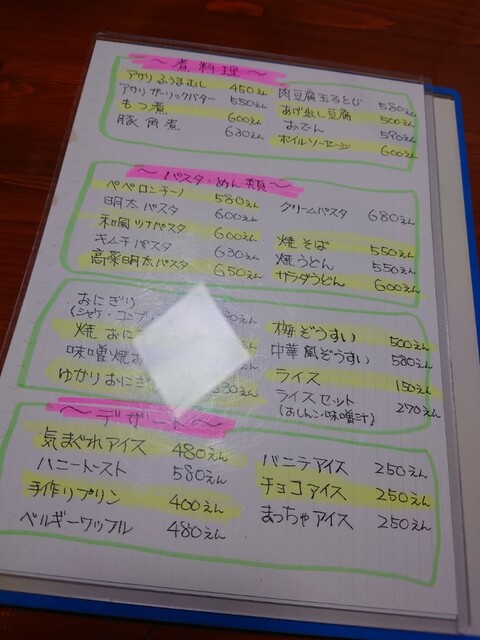 ～煮料理～
アサリふうまむし 450えん
アサリガーリックバター 550えん
もつ煮 600えん
豚角煮 630えん
肉豆腐玉子とじ 580えん
あげ出し豆腐 500えん
おでん 590えん
ボイルソーセージ 600えん
～パスタ・めん類～
ペペロンチーノ 580えん
明太パスタ 600えん
和風ツナパスタ 600えん
キムチパスタ 630えん
高菜明太パスタ 650えん
クリームパスタ 680えん
焼そば 550えん
焼うどん 550えん
サラダうどん 600えん
おにぎり
(シャケ・コンブ
焼おに
味噌焼お
ゆかりおにぎ
梅ぞうすい 500えん
中華風ぞうすい 580えん
ライス 150えん
ライスセット 270えん
(おしんこ・味噌汁)
～デザート～
気まぐれアイス 480えん
ハニートースト 580えん
手作りプリン 400えん
ベルギーワッフル 480えん
バニラアイス 250えん
チョコアイス 250えん
まっちゃアイス 250えん